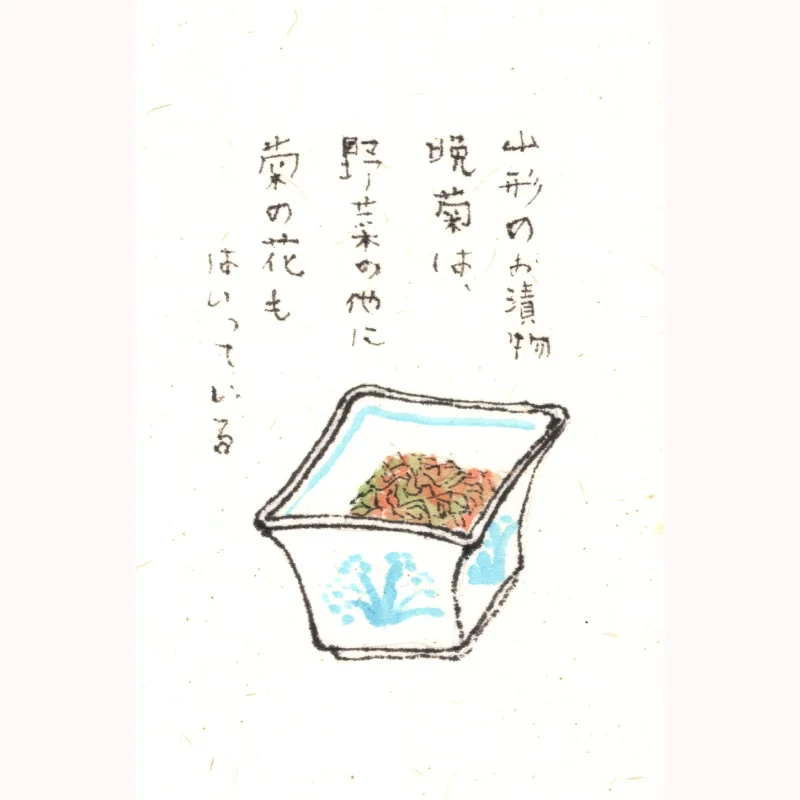 山形のお漬物
晩菊は、
野菜の他に
菊の花も
はいっている